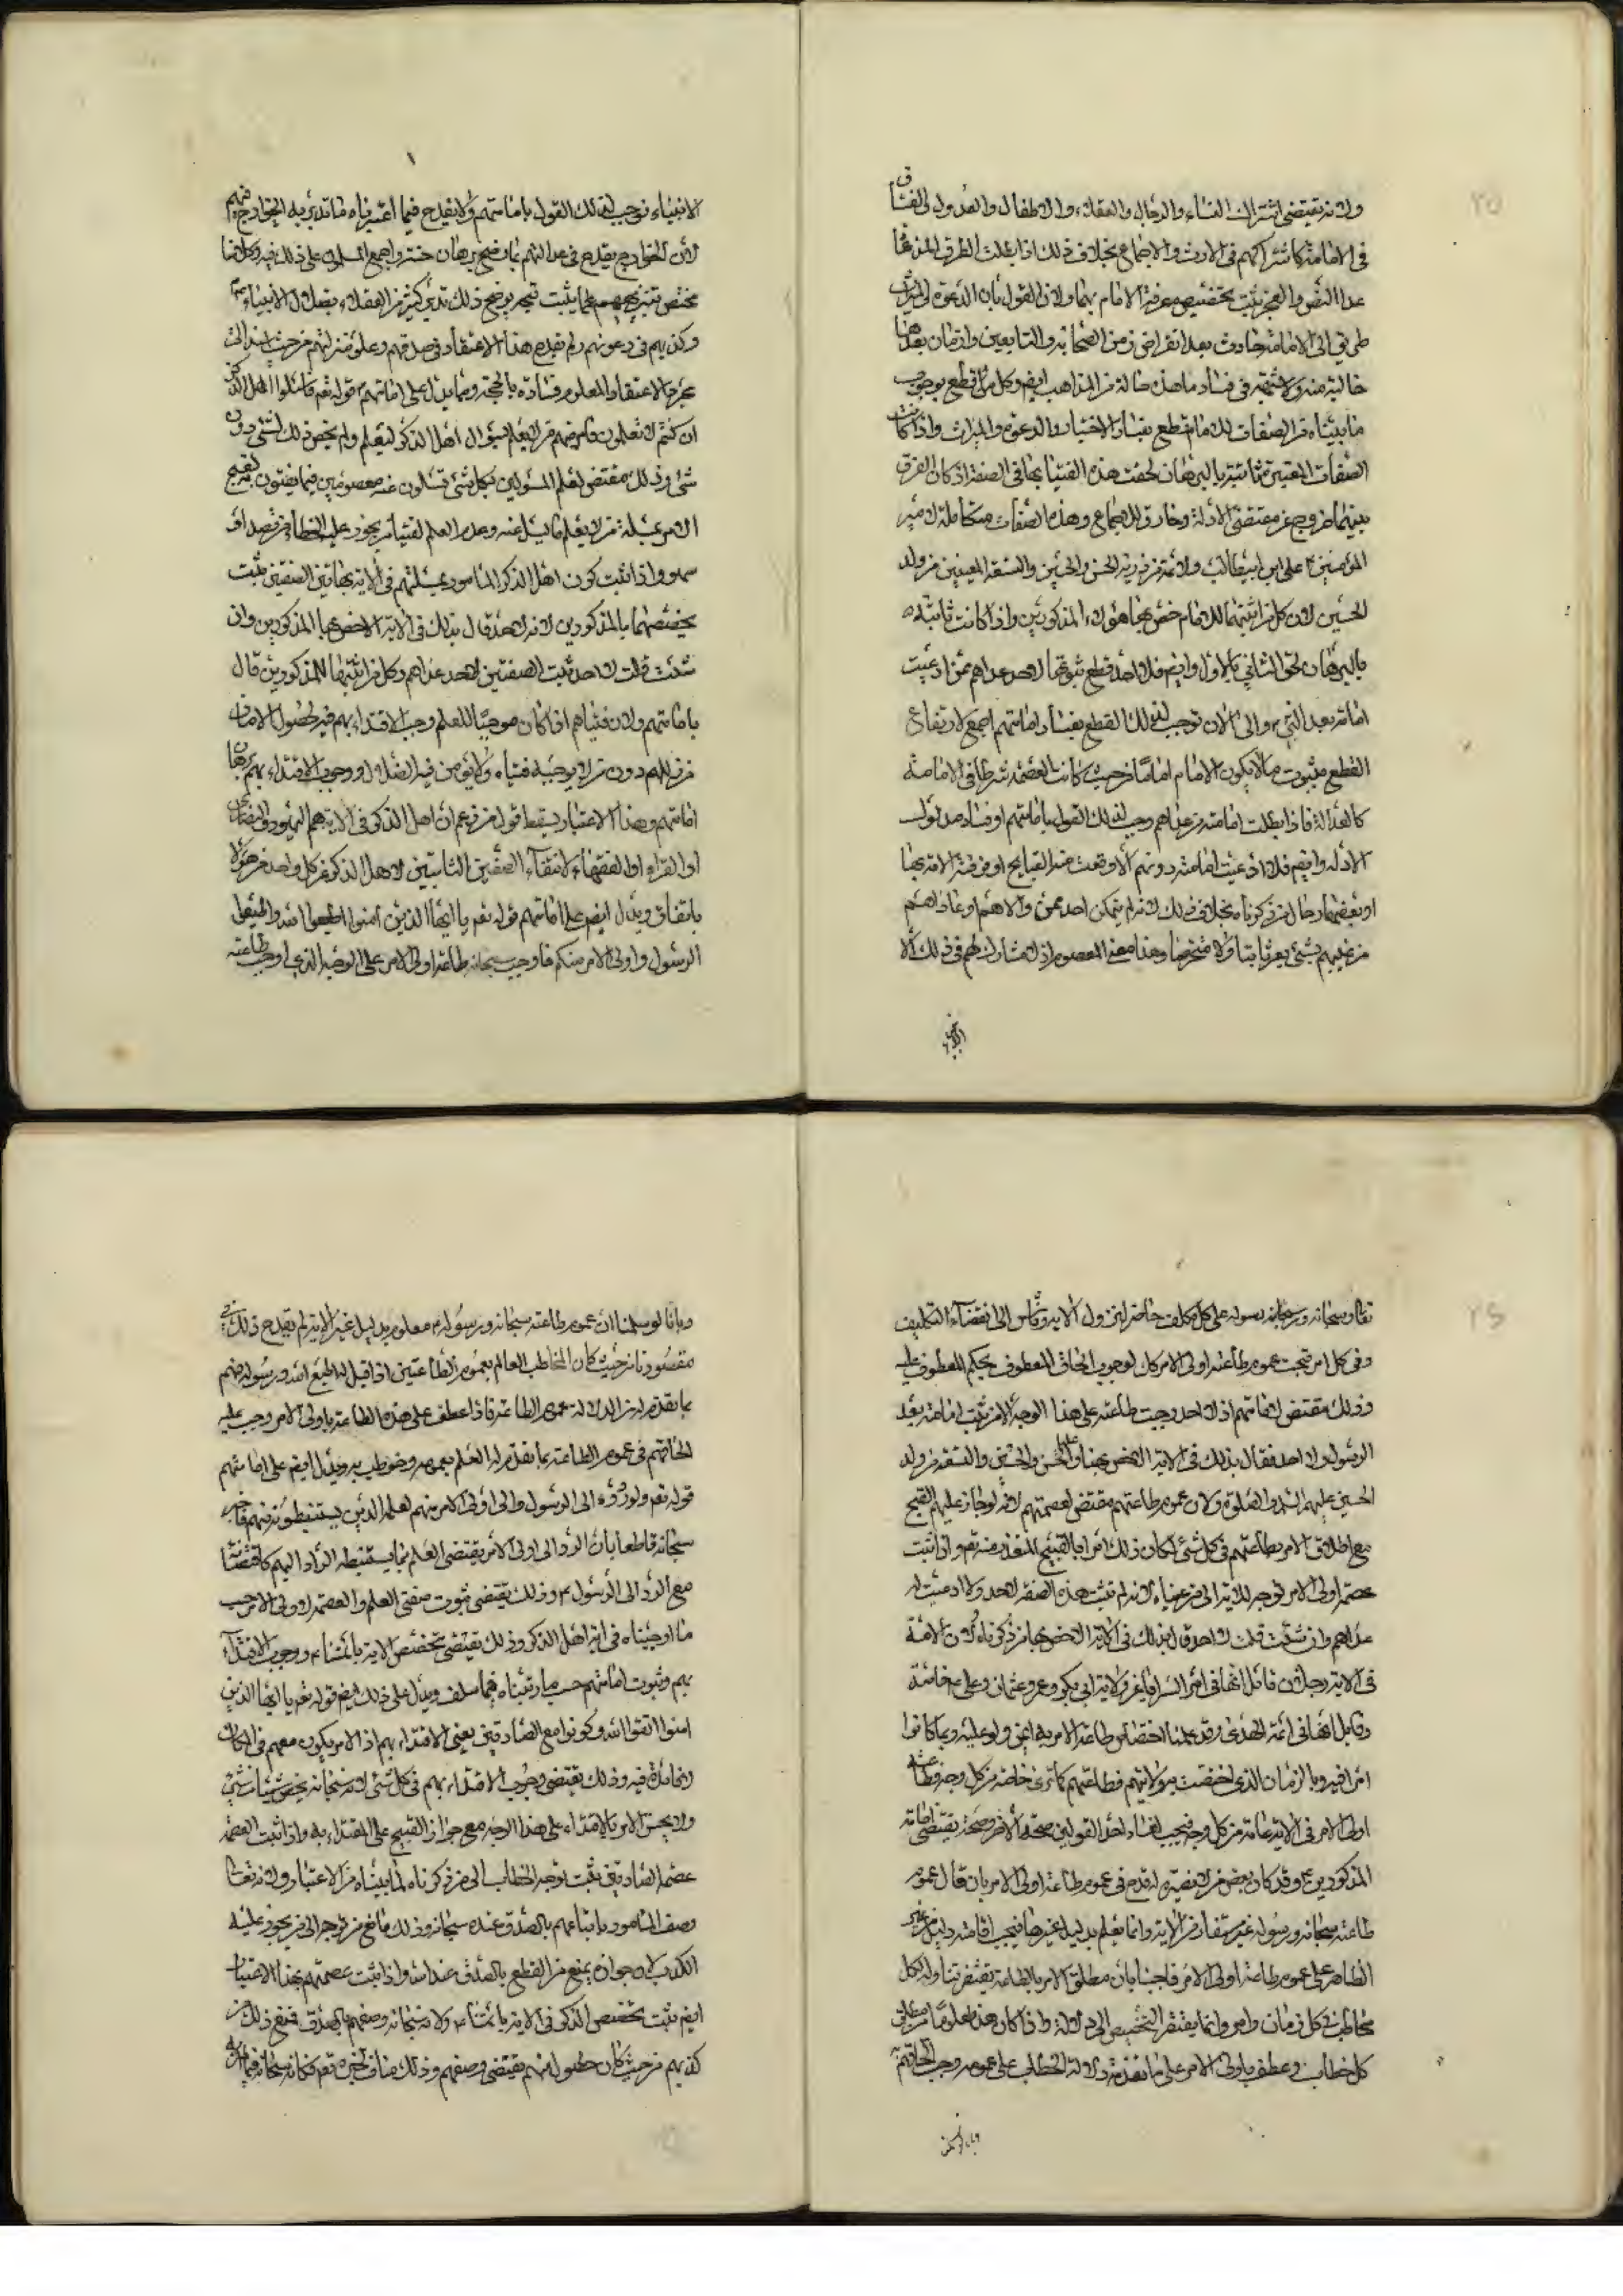 ٢٥
ولانه يقتضى اشتراك النساء والرجال والعقلاء والاطفال والعدول والفساق
فى الامامة كاشتراكهم فى الارث والاجماع بخلاف ذلك اذا بطلت الطرق المدعاة
عدا النص والمعجز ثبت تخصيص معرفة الامام بهما ولان القول بان الدعوة والميراث
طريق الى الامامة حادث بعد انقراض زمن الصحابة والتابعين وازمان بعدهما
خالية منه ولا شبهة فى فساد ما هذه حاله من المذاهب ايضم وكل من قطع بوجوب
ما بيناه من الصفات للامام قطع بفساد الاختيار والدعوة والميراث واذا كانت
الصفات المعتبرة ثابتة بالبرهان لحقت هذه الفتيا بها فى الصفة اذ كان الفرق
بينهما خروج عن مقتضى الادلة وخارق للاجماع وهذه الصفات متكاملة لامير
المؤمنين ع على ابن ابيطالب والائمة من ذرية الحسن والحسين والتسعة المعينين من ولد
الحسين لان كل من اثبتها للامام خص بها هؤلاء المذكورين واذا كانت ثابتة
بالبرهان لحق الثانى بالاول وايضم فلا احد قطع بثبوتها لاحد عداهم ممن ادعيت
امامته بعد النبى ص والى الان توجب لذلك القطع بفساد امامتهم اجمع لارتفاع
القطع بثبوت ما لا يكون الامام اماما من حيث كانت العصمة شرطا فى الامامة
كالعدالة فاذا بطلت امامة من عداهم وجب لذلك القول بامامتهم او فساد مدلول
الادلة وايضم فلا ادعيت امامته دونهم الا وقعت منه القبايح او فرقة الامة بها
او بعضها رجال من ذكرناه بخلاف ذلك لانه لم يتمكن احد ممن والاهم او عاداهم
من عيبهم بشئ يعر ثابتا ولا متخرصا وهذا معنى المعصوم اذ لا مشارك لهم فى ذلك الا
الانبياء
الانبياء توجب لذلك القول بامامتهم ولا يقدح فيما اعتبرناه ما تدين به الخوارج فيهم
لان الخوارج يقدح فى عدالتهم بما يضح برهان حسنه واجمع المسلمون على ذلك فيه وكلامنا
مختص بتبريهم مما يثبت قبحه يوضح ذلك تدين كثير من العقلاء بضلال الانبياء ع
وكذبهم فى دعوتهم ولم يقدح هذا الاعتقاد فى صدقهم وعلو منزلتهم من حيث استند الى
مجرد الاعتقاد المعلوم فساده بالحجة ومما يدل على امامتهم ع قوله تعم فاسئلوا اهل الذكر
ان كنتم لا تعلمون فامر منهم من لا يعلم بسؤال اهل الذكر ليعلم ولم يخص ذلك لشئ دون
شئ وذلك مقتض لعلم المسؤلين بكل شئ تسئلون عنه معصومين فيما يفتون به لقبح
الامر بمسئلة من لا يعلم ما يسئل عنه وعدم العلم لفتيا من يجوز عليه الخطاء من قصد او
سهو واذا ثبت كون اهل الذكر المامور بمسئلتهم فى الاية بهاتين الصفتين ثبت
تخصيصها بالمذكورين لانه لا احد قال بذلك فى الاية الا خص بها المذكورين وان
شئت قلت لا احد ثبتت الصفتين لاحد عداهم وكل من اثبتها للمذكورين قال
بامامتهم ولان فتياهم اذا كان موجبا للعلم وجب الاقتداء بهم فيه لحصول الامان
من زللهم دون من لا يوجبه فتياه ولا يؤمن فيه الضلال ووجوب الاقتداء بهم برهان
امامتهم وهذا الاعتبار يسقط قول من زعم ان اهل الذكر فى الاية هم اليهود والنصارى
او القراء او الفقهاء لانتفاء الصفتين الثابتتين لاهل الذكر عن كل واحد من هؤلاء
باتفاق ويدل ايضم على امامتهم قوله تعم يا ايها الذين امنوا اطيعوا الله واطيعوا
الرسول واولى الامر منكم فاوجب سبحانه طاعة اولى الامر على الوجه الذى اوجب طاعته
٢٦
تعالى سبحانه ورسوله على كل مكلف حاضر لنزول الاية وناس الى انقضاء التكليف
وفى كل امر فيجب عموم طاعة اولى الامر كل لوجوب الحاق المعطوف بحكم المعطوف عليه
وذلك مقتض لامامتهم اذ لا احد وجبت طاعته على هذا الوجه الا من ثبت امامته بعد
الرسول ولا احد فقال بذلك فى الاية الا خص بها عليا والحسن والحسين والتسعة من ولد
الحسين عليهم السلام والصلوة ولان عموم طاعتهم مقتض لعصمتهم لانه لو جاز عليهم القبيح
مع اطلاق الامر بطاعتهم فى كل شئ لكان ذلك امرا بالقبيح المتعذر منه تعم واذا ثبت
عصمة اولى الامر توجه الاية الى من عنياه لانه لم تثبت هذه الصفة لاحد ولا ادعيت له
عداهم وان شئت قلت لا احد قال بذلك فى الاية الا خص بها من ذكرناه لان الامة
فى الاية رجلان قائل انها فى امراء السرايا وولاية ابى بكر وعمر وعثمان وعلى ع خاصة
وقائل انها فى ائمة الهدى وقد علمنا اختصاص طاعة امراء السرايا بمن ولوا عليه وبما كانوا
امراء فيه وبالزمان الذى اختصت به ولايتهم فطاعتهم كما ترى خاصة من كل وجه وطاعة
اولى الامر فى الاية عامة من كل وجه فيجب لفساد احد القولين صحة الاخر وصحته يقتضى امامة
المذكورين ع وقد كان بعض من لا نصفة له قدح فى عموم طاعة اولى الامر بان قال عموم
طاعته سبحانه ورسوله غير مستفاد من الاية وانما يعلم بدليل غيرها فيجب اقامة دليل من غير
الظاهر على عموم طاعة اولى الامر فاجبنا بان مطلق الامر بالطاعة يقتضى تناوله لكل
مخاطب فى كل زمان وامر وانما يفتقر التخصيص الى دلالة واذا كان هذا معلوما من مطلق
كل خطاب وعطف باولى الامر على ما تقدمه دلالة الخطاب على عمومه وجب الحاقهم به
وبانا لو سلمنا
وبانا لو سلمنا ان عموم طاعته سبحانه ورسوله ص معلوم بدليل غير الاية لم يقدح ذلك فى
مقصودنا من حيث كان المخاطب العالم بعموم الطاعتين اذا قيل له اطع الله ورسوله فهم
بما تقدم له من الدلالة عموم الطاعة فاذا عطف على هذه الطاعة باولى الامر وجب عليه
الحاقهم فى عموم الطاعة بما تقدم له العلم بعمومه وخوطب به ويدل ايضم على امامتهم
قوله تعم ولو ردوه الى الرسول والى اولى الامر منهم لعلمه الذين يستنبطونه منهم فاخبر
سبحانه قاطعا بان الرد الى اولى الامر يقتضى العلم بما يستنبطه الراد اليهم كاقتضائه
مع الرد الى الرسول ص وذلك يقتضى ثبوت صفتى العلم والعصمة لاولى الامر حسب
ما اوجبناه فى اية اهل الذكر وذلك يقتضى تخصيص الاية بائمتنا ع ووجوب الاقتداء
بهم وثبوت امامتهم حسب ما رتبناه فيما سلف ويدل على ذلك ايضم قوله تعم يا ايها الذين
امنوا اتقوا الله وكونوا مع الصادقين يعنى الاقتداء بهم اذ الامر بكون معهم فى المكان
لا فائدة فيه وذلك يقتضى وجوب الاقتداء بهم فى كل شئ لانه سبحانه لم يخص شيئا من شئ
ولا يحسن الامر بالاقتداء على هذا الوجه مع جواز القبيح على المقتداء به واذا ثبت العصمة
عصمة الصادقين ثبت توجه الخطاب الى من ذكرناه لما بيناه من الاعتبار ولانه تعالى
وصف المامور باتباعهم بالصدق عنده سبحانه وذلك مانع من توجهه الى من يجوز عليه
الكذب لان جوازه يمنع من القطع بالصدق عند الله واذا ثبت عصمتهم بهذا الاعتبار
ايضم ثبت تخصيص الذكر فى الاية بائمتنا ع ولانه سبحانه وصفهم بالصدق فمنع ذلك من
كذبهم من حيث كان حصوله منهم يقتضى وصفهم وذلك مناف لخبره تعم فكانه سبحانه